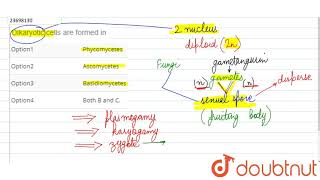 23698130
Dikaryotic cells are formed in
Option1 Phycomycetes
Option2 Ascomycetes
Option3 Basidiomycetes
Option4 Both B and C.
2 nucleus
diploid (2n)
Fungi
gametangium
(n) gametes (n)
disperse
sexual spore
(fruiting body)
plasmogamy
karyogamy
zygote
doubtnut